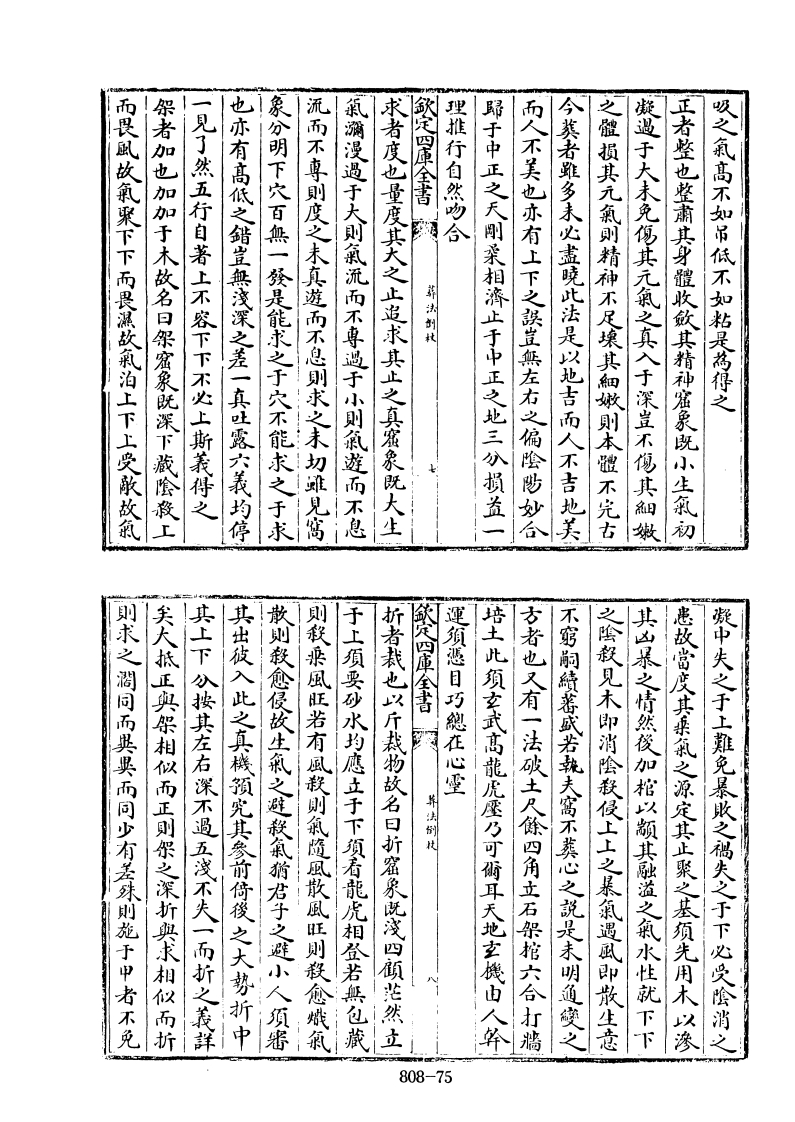 吸之氣高不如吊低不如粘是為得之
正者整也整肅其身體收斂其精神窟象既小生氣初
凝過于大未免傷其元氣之真入于深豈不傷其細嫩
之體損其元氣則精神不足壞其細嫩則本體不完古
今葬者雖多未必盡曉此法是以地吉而人不吉地美
而人不美也亦有上下之誤豈無左右之偏陰陽妙合
歸于中正之天剛柔相濟止于中正之地三分損益一
理推行自然吻合
欽定四庫全書
葬法倒杖
七
求者度也量度其大之止追求其止之真窟象既大生
氣瀰漫過于大則氣流而不專過于小則氣遊而不息
流而不專則度之未真遊而不息則求之未切雖見窩
象分明下穴百無一發是能求之于穴不能求之于求
也亦有高低之錯豈無淺深之差一真吐露六義均停
一見了然五行自著上不容下下不必上斯義得之
架者加也加加于木故名曰架窟象既深下藏陰殺上
而畏風故氣聚下下而畏濕故氣泊上下上受敵故氣
凝中失之于上難免暴敗之禍失之于下必受陰消之
患故當度其乘氣之源定其止聚之基須先用木以滲
其凶暴之情然後加棺以顓其融溢之氣水性就下下
之陰殺見木即消陰殺侵上上之暴氣遇風即散生意
不窮嗣續蕃盛若執夫窩不葬心之說是未明通變之
方者也又有一法破土尺餘四角立石架棺六合打牆
培土此須玄武高龍虎壓乃可爾耳天地玄機由人幹
運須憑目巧總在心靈
欽定四庫全書
葬法倒杖
八
折者裁也以斤裁物故名曰折窟象既淺四顧茫然立
于上須要砂水均應立于下須看龍虎相登若無包藏
則殺乘風旺若有風殺則氣隨風散風旺則殺愈熾氣
散則殺愈侵故生氣之避殺氣猶君子之避小人須審
其出彼入此之真機預究其參前倚後之大勢折中
其上下分按其左右深不過五淺不失一而折之義詳
矣大抵正與架相似而正則架之深折與求相似而折
則求之濶同而異異而同少有差殊則施于甲者不免
808-75